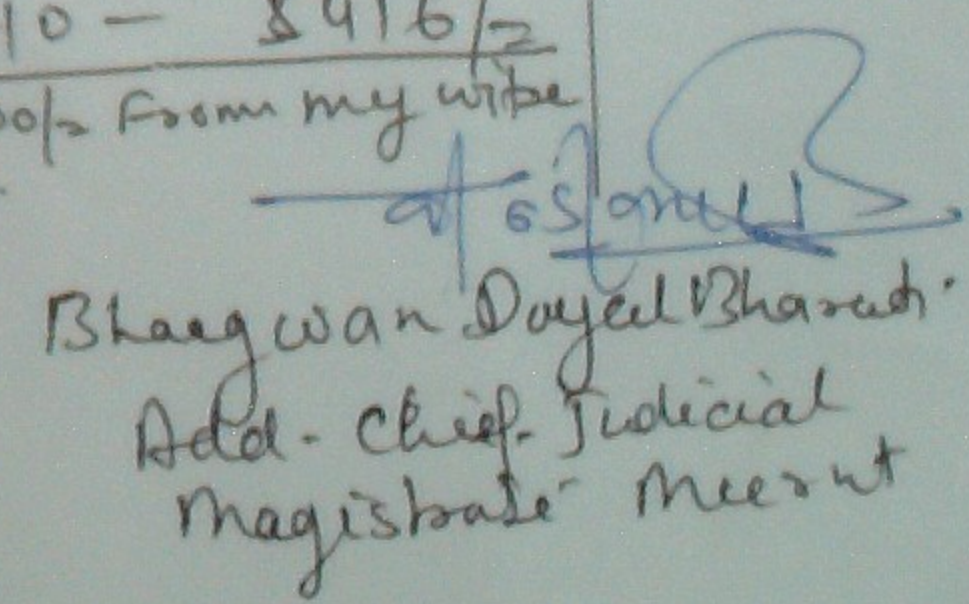 10 — 8416/=
00/= From my wife
Bhagwan Dayal Bharati.
Add. Chief. Judicial
Magistrate Meerut